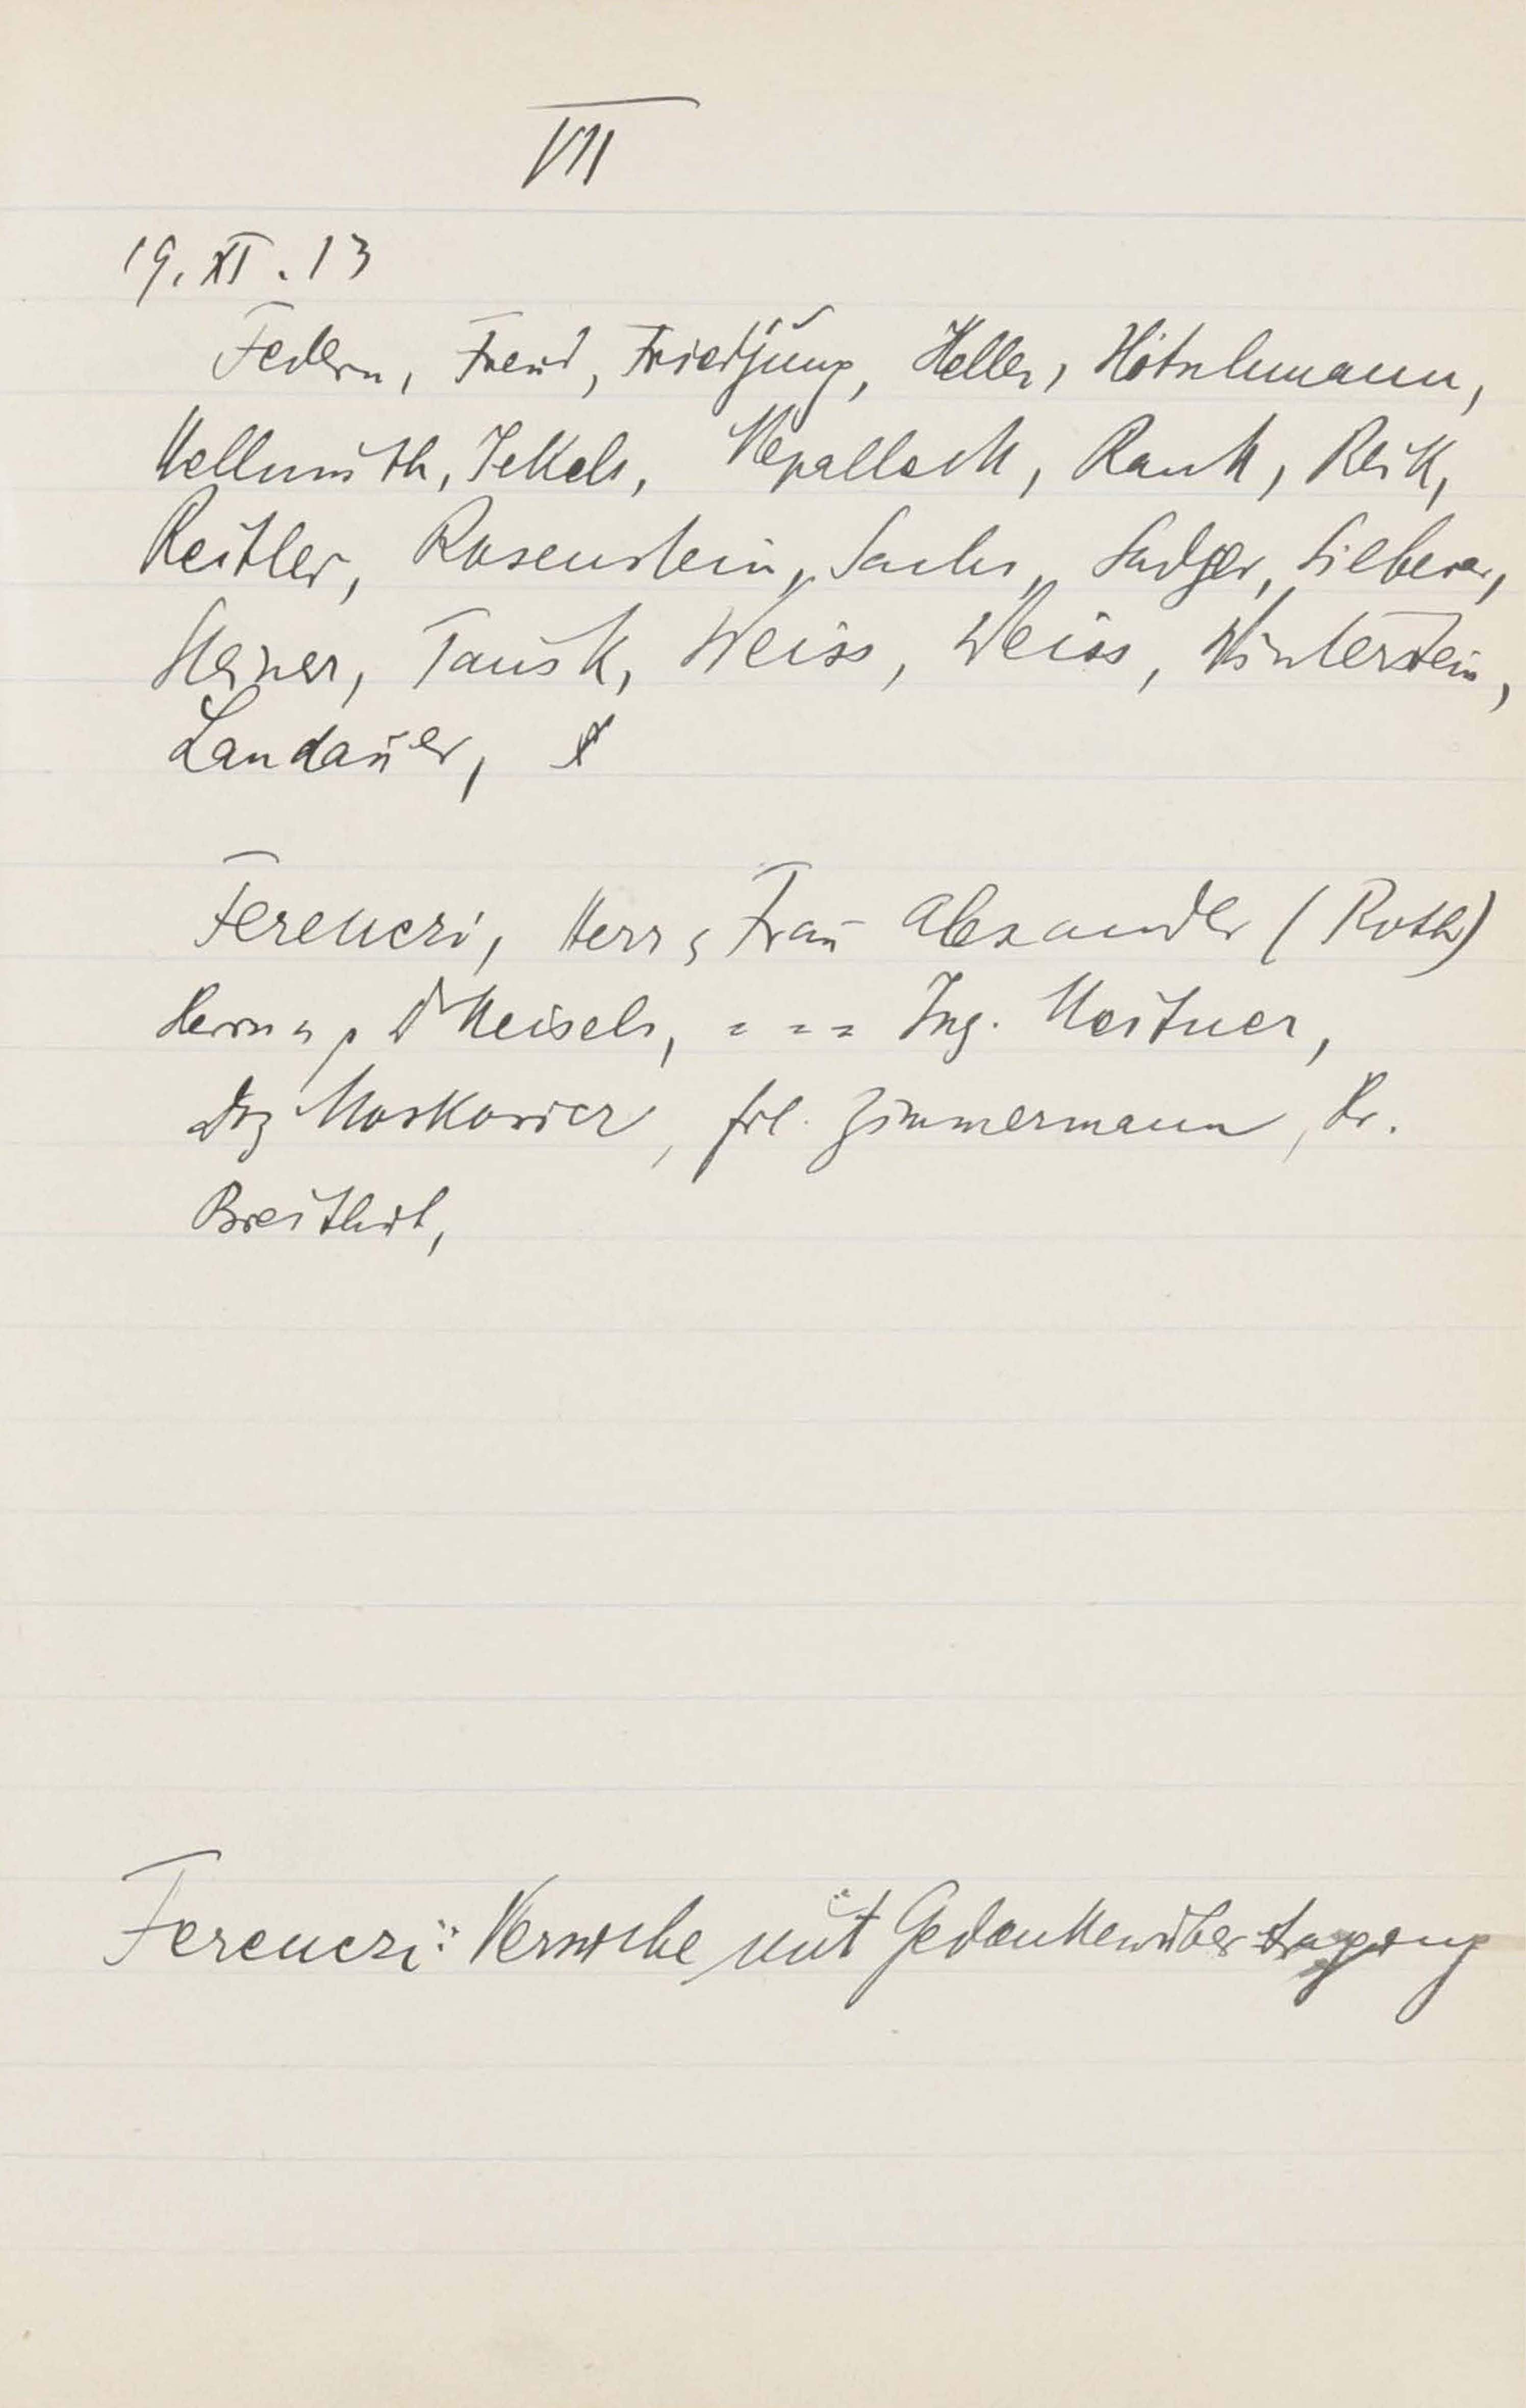 VII
19. XI. 13
Federn, Freud, Friedjung, Heller, Hitschmann,
Hellmuth, Jekels, Nepalleck, Rank, Reik,
Reitler, Rosenstein, Sachs, Sadger, Silberer,
Steiner, Tausk, Weiss, Weiss, Winterstein,
Landauer,
Ferenczi, Herr u Frau Alexander (Roth)
Dr Meisels, = = = Ing. Meitner,
Doz Moskovicz, Frl. Zimmermann, Dr.
Ferenczi: Versuche mit Gedankenübertragung